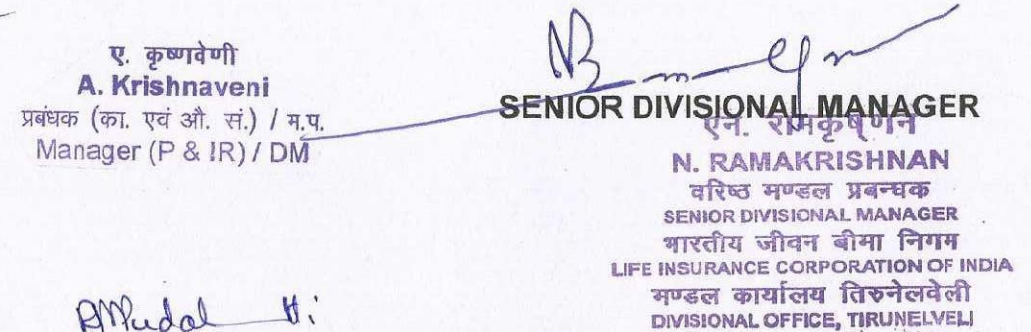 ए. कृष्णवेणी
A. Krishnaveni
प्रबंधक (का. एवं औ. सं.) / म.प्र.
Manager (P & IR) / DM
SENIOR DIVISIONAL MANAGER
एन. रामकृष्णन
N. RAMAKRISHNAN
वरिष्ठ मण्डल प्रबन्धक
SENIOR DIVISIONAL MANAGER
भारतीय जीवन बीमा निगम
LIFE INSURANCE CORPORATION OF INDIA
मण्डल कार्यालय तिरुनेलवेली
DIVISIONAL OFFICE, TIRUNELVELI